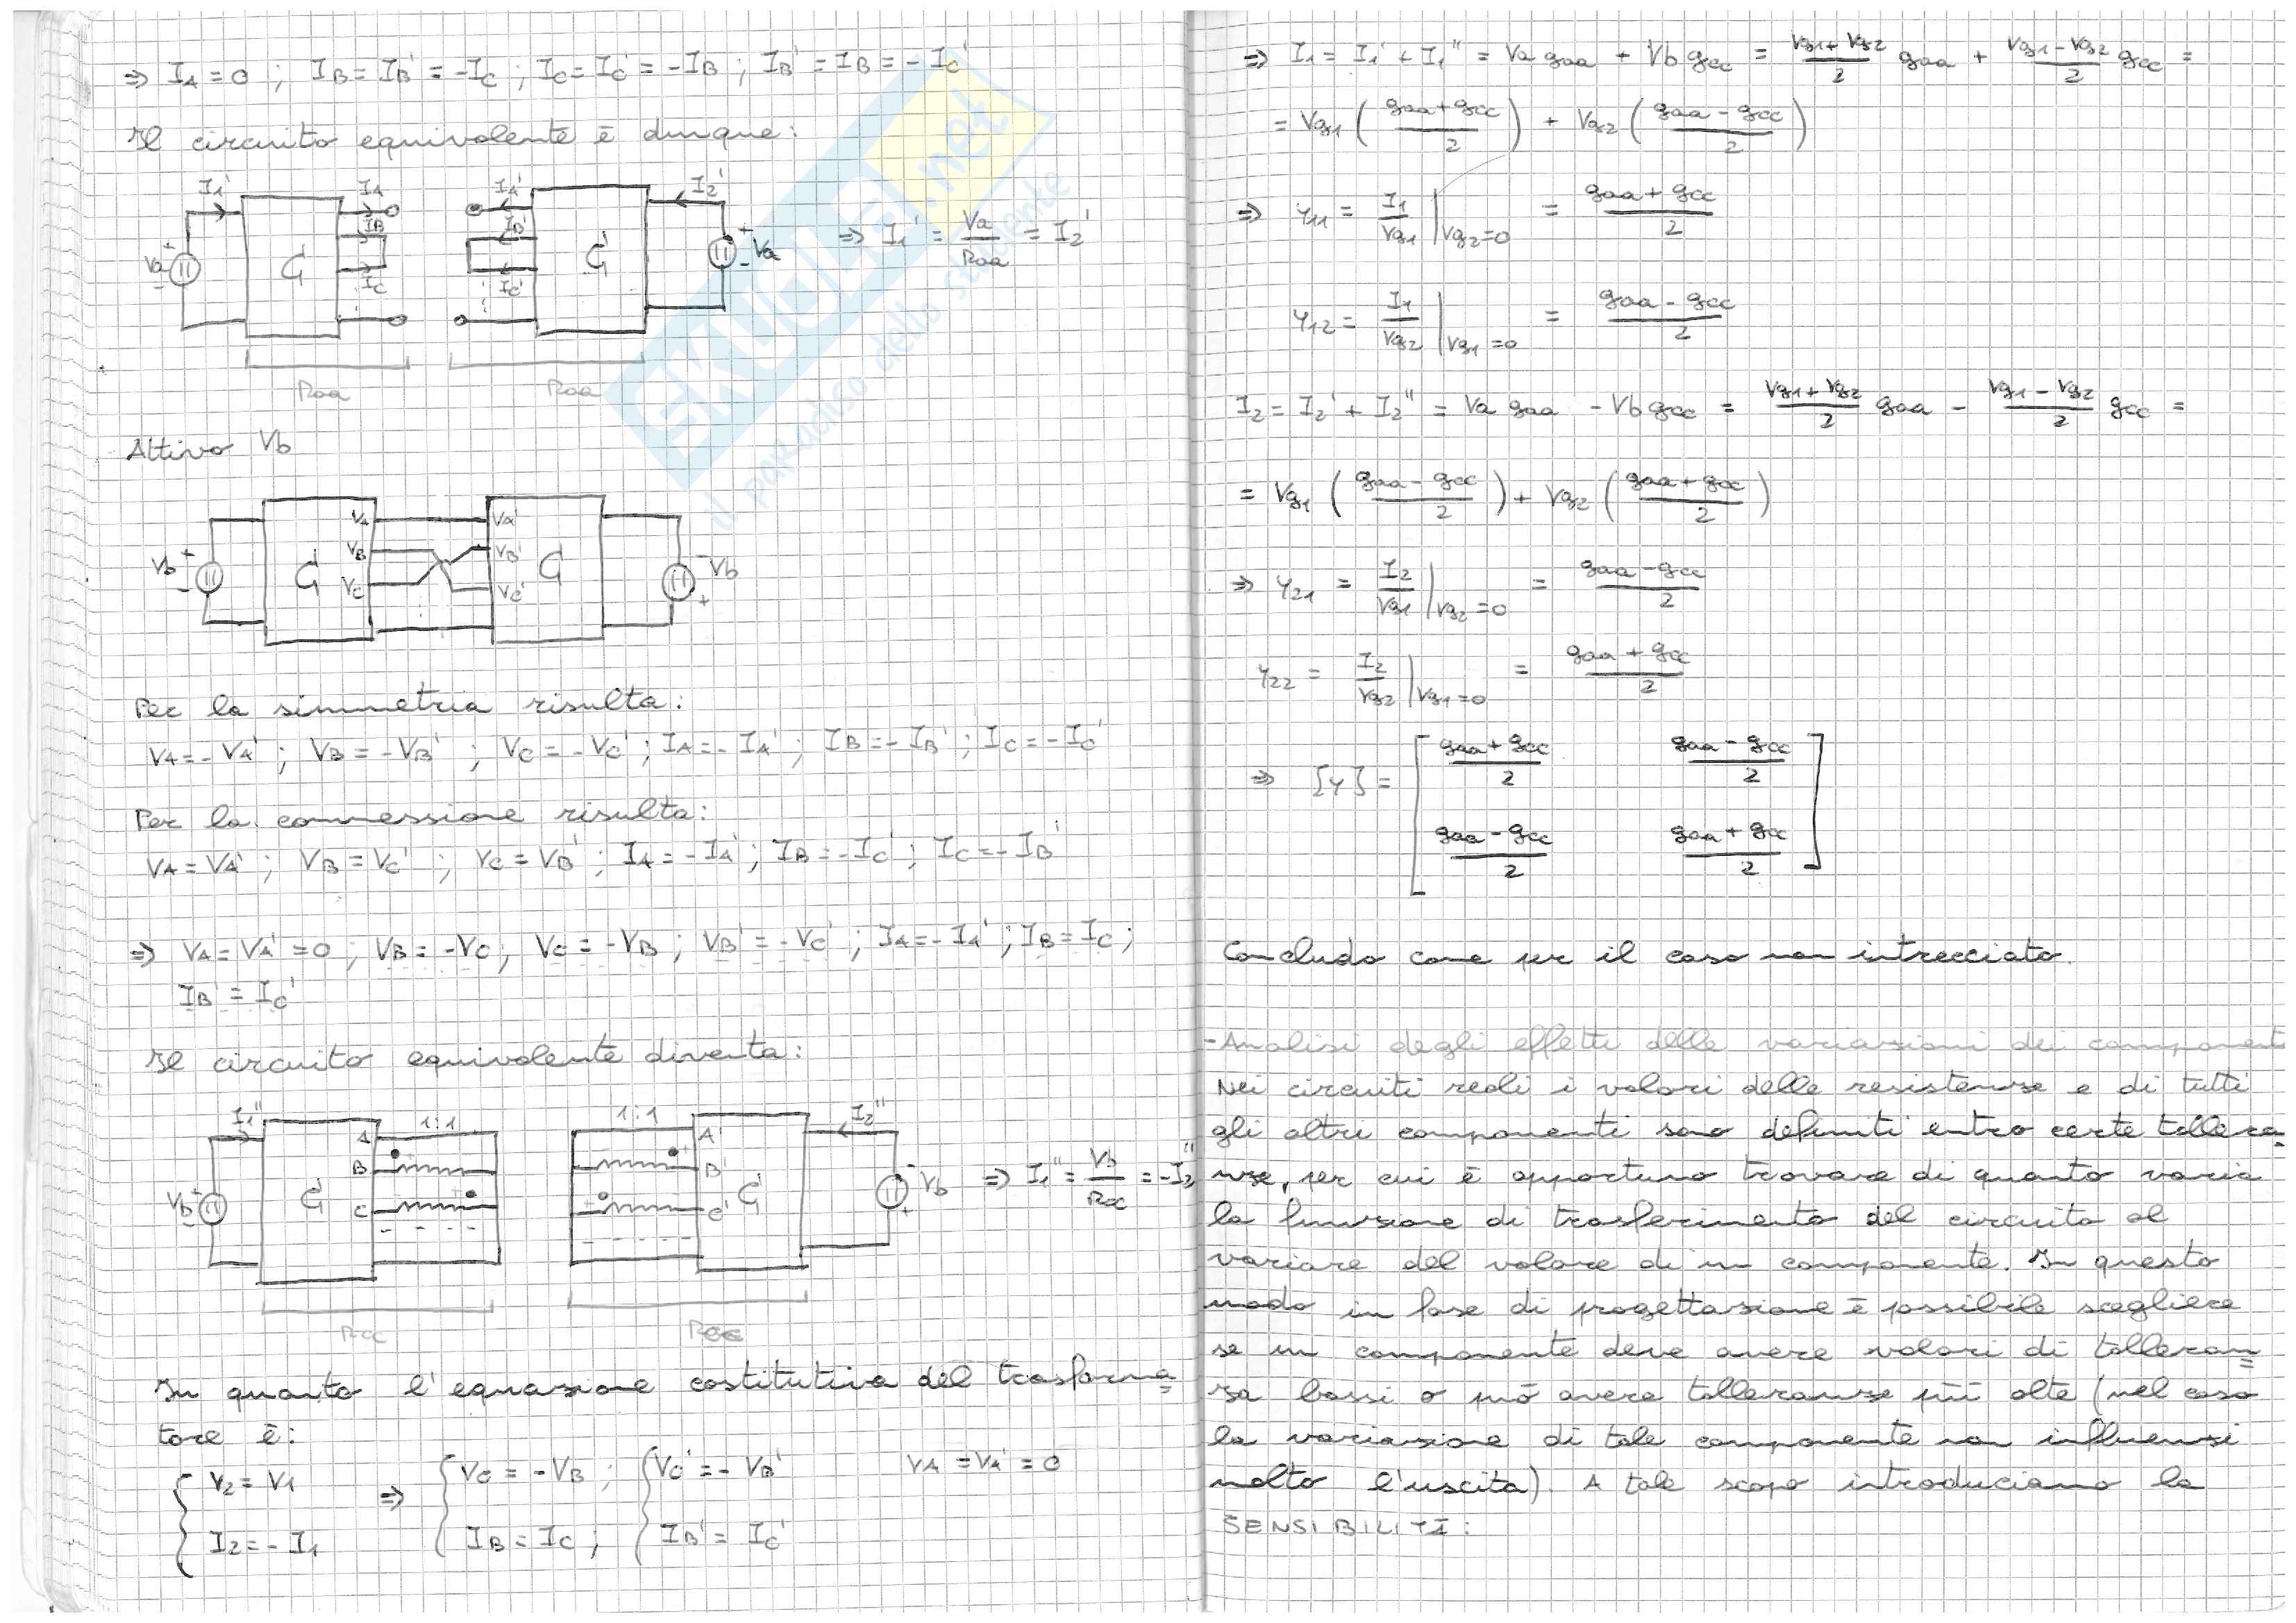 ⇒ IA = 0 ; IB = IB' = -IC ; IC = IC' = -IB ; IB' = IB = -IC'
Il circuito equivalente è dunque:
I1' IA IA' I2'
IB IB'
Va G G Va ⇒ I1' = Va/Raa = I2'
IC IC'
Raa Raa
Attivo Vb
VA VA'
Vb VB VB' Vb
G G
VC VC'
Per la simmetria risulta:
VA = -VA' ; VB = -VB' ; VC = -VC' ; IA = -IA' ; IB = -IB' ; IC = -IC'
Per la connessione risulta:
VA = VA' ; VB = VC' ; VC = VB' ; IA = -IA' ; IB = -IC' ; IC = -IB'
⇒ VA = VA' = 0 ; VB = -VC ; VC = -VB ; VB' = -VC' ; IA = -IA' ; IB = IC ;
IB' = IC'
Il circuito equivalente diventa:
I1'' 1:1 1:1 I2''
A A'
B B'
Vb G G Vb ⇒ I1'' = Vb/Rcc = -I2''
C C'
Rcc Rcc
In quanto l'equazione costitutiva del trasforma=
tore è:
{ V2 = V1 ⇒ { VC = -VB ; { VC' = -VB' VA = VA' = 0
I2 = -I1 IB = IC ; IB' = IC'
⇒ I1 = I1' + I1'' = Va gaa + Vb gcc = (Vg1+Vg2)/2 gaa + (Vg1-Vg2)/2 gcc =
= Vg1 ( (gaa+gcc)/2 ) + Vg2 ( (gaa-gcc)/2 )
⇒ y11 = I1/Vg1 |Vg2=0 = (gaa+gcc)/2
y12 = I1/Vg2 |Vg1=0 = (gaa-gcc)/2
I2 = I2' + I2'' = Va gaa - Vb gcc = (Vg1+Vg2)/2 gaa - (Vg1-Vg2)/2 gcc =
= Vg1 ( (gaa-gcc)/2 ) + Vg2 ( (gaa+gcc)/2 )
⇒ y21 = I2/Vg1 |Vg2=0 = (gaa-gcc)/2
y22 = I2/Vg2 |Vg1=0 = (gaa+gcc)/2
⇒ [y] = [ (gaa+gcc)/2 (gaa-gcc)/2
(gaa-gcc)/2 (gaa+gcc)/2 ]
Concludo come per il caso non intrecciato.
-Analisi degli effetti delle variazioni dei componenti
Nei circuiti reali i valori delle resistenze e di tutti
gli altri componenti sono definiti entro certe tollera=
nze, per cui è opportuno trovare di quanto varia
la funzione di trasferimento del circuito al
variare del valore di un componente. In questo
modo in fase di progettazione è possibile scegliere
se un componente deve avere valori di tolleran=
za bassi o può avere tolleranze più alte (nel caso
la variazione di tale componente non influenzi
molto l'uscita). A tale scopo introduciamo la
SENSIBILITÀ:
SKUOLA.net
il paradiso dello studente